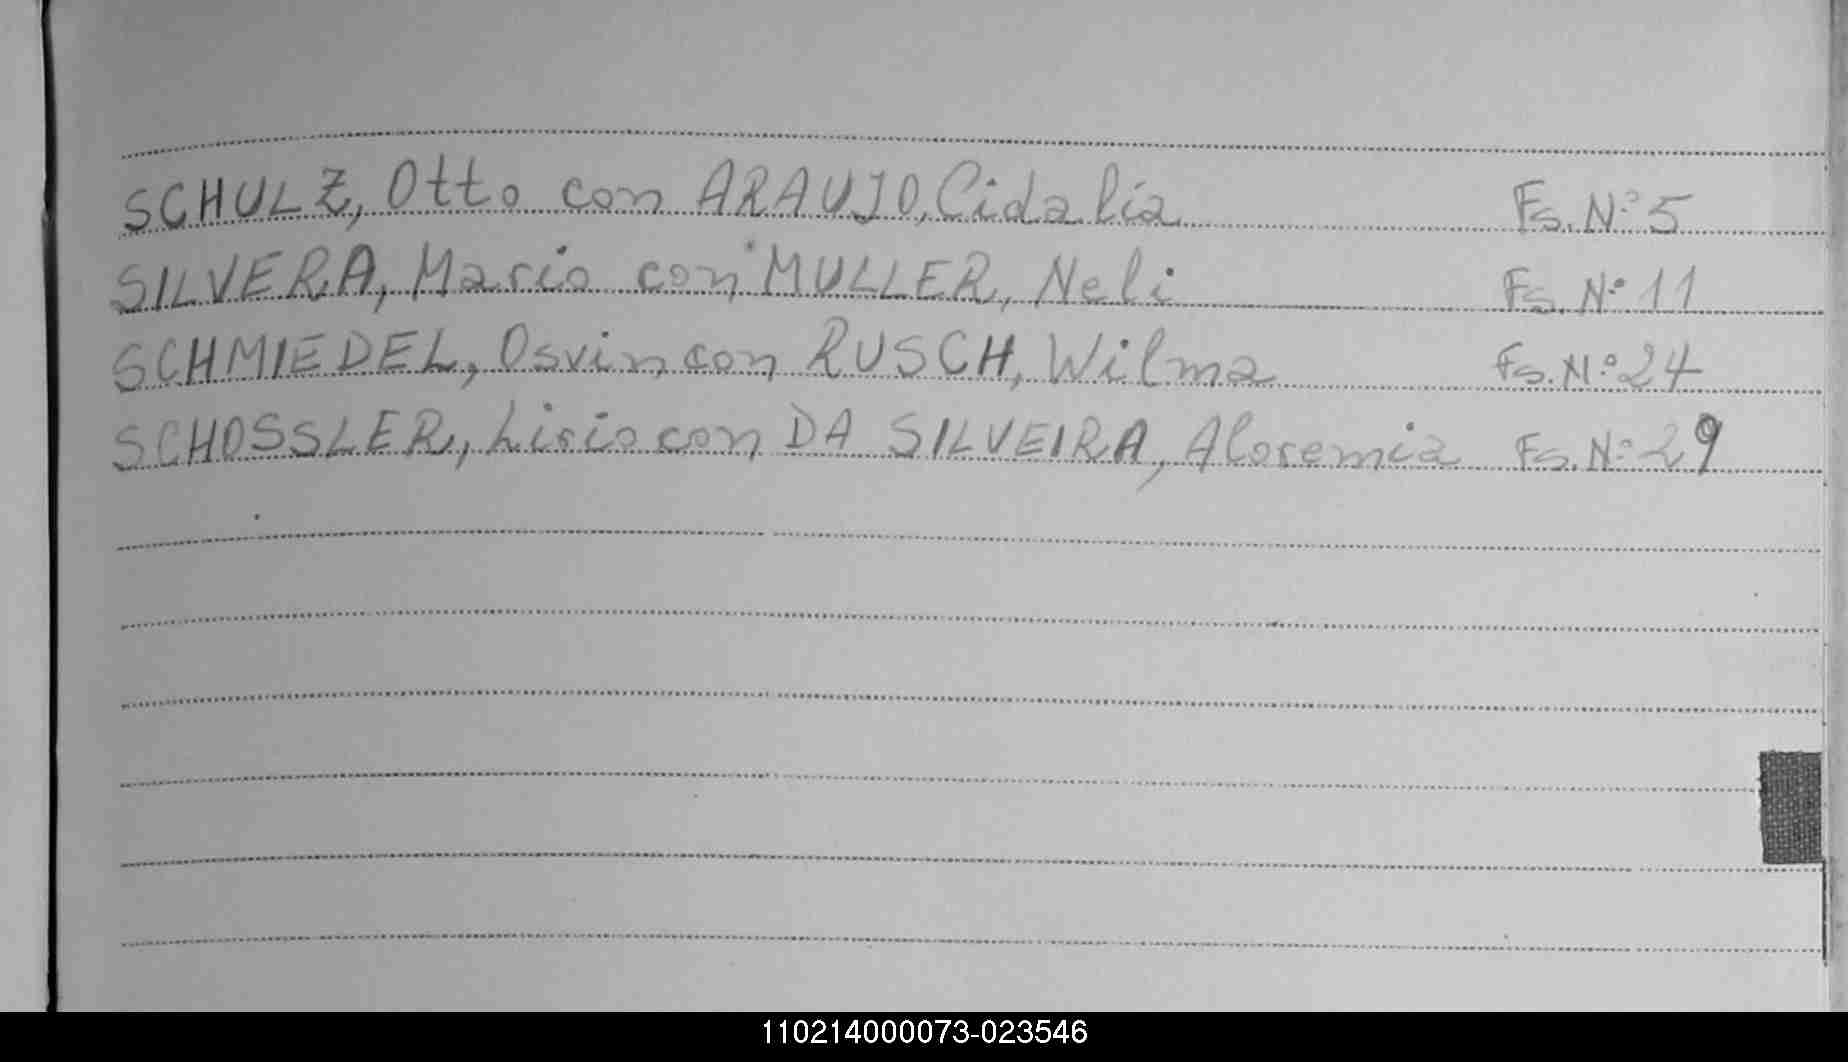 SCHULZ, Otto con ARAUJO, Cidalia Fs. Nº 5
SILVERA, Mario con MULLER, Neli Fs. Nº 11
SCHMIEDEL, Osvin con RUSCH, Wilma Fs. Nº 24
SCHOSSLER, Lirio con DA SILVEIRA, Aloremia Fs. Nº 29
110214000073-023546